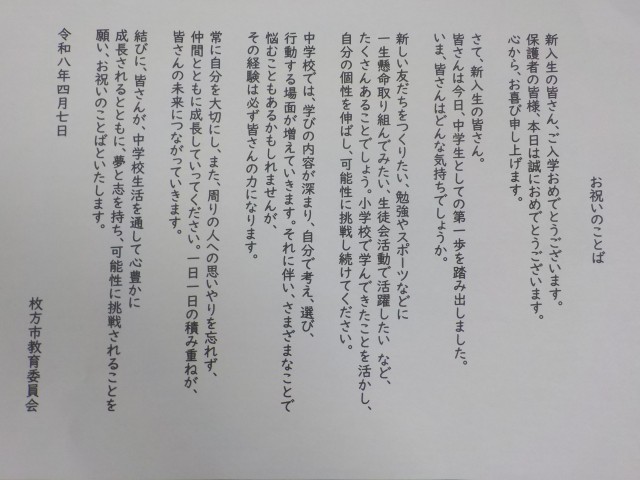 お祝いのことば
新入生の皆さん、ご入学おめでとうございます。
保護者の皆様、本日は誠におめでとうございます。
心から、お喜び申し上げます。
さて、新入生の皆さん。
皆さんは今日、中学生としての第一歩を踏み出しました。
いま、皆さんはどんな気持ちでしょうか。
新しい友だちをつくりたい、勉強やスポーツなどに
一生懸命取り組んでみたい、生徒会活動で活躍したい など、
たくさんあることでしょう。小学校で学んできたことを活かし、
自分の個性を伸ばし、可能性に挑戦し続けてください。
中学校では、学びの内容が深まり、自分で考え、選び、
行動する場面が増えていきます。それに伴い、さまざまなことで
悩むこともあるかもしれませんが、
その経験は必ず皆さんの力になります。
常に自分を大切にし、また、周りの人への思いやりを忘れず、
仲間とともに成長していってください。一日一日の積み重ねが、
皆さんの未来につながっていきます。
結びに、皆さんが、中学校生活を通して心豊かに
成長されるとともに、夢と志を持ち、可能性に挑戦されることを
願い、お祝いのことばといたします。
令和八年四月七日
枚方市教育委員会